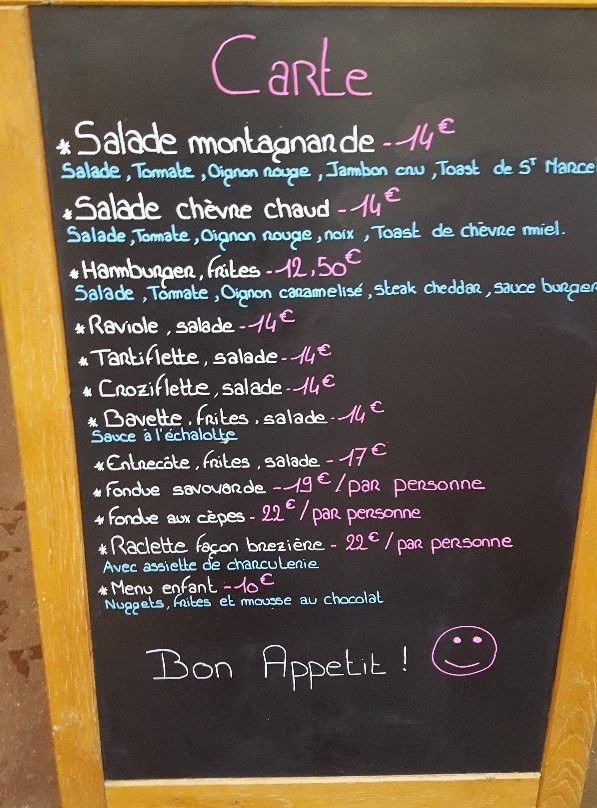 Carte
* Salade montagnarde - 14€
Salade, Tomate, Oignon rouge, Jambon cru, Toast de Sᵀ Marcel
* Salade chèvre chaud - 14€
Salade, Tomate, Oignon rouge, noix, Toast de chèvre miel.
* Hamburger, frites - 12,50€
Salade, Tomate, Oignon caramelisé, steak cheddar, sauce burger
* Raviole, salade - 14€
* Tartiflette, salade - 14€
* Croziflette, salade - 14€
* Bavette, frites, salade - 14€
Sauce à l'échalotte
* Entrecôte, frites, salade - 17€
* fondue savoyarde - 19€/par personne
* fondue aux cèpes - 22€/par personne
* Raclette façon brezière - 22€/par personne
Avec assiette de charcuterie
* Menu enfant - 10€
Nuggets, frites et mousse au chocolat
Bon Appetit !